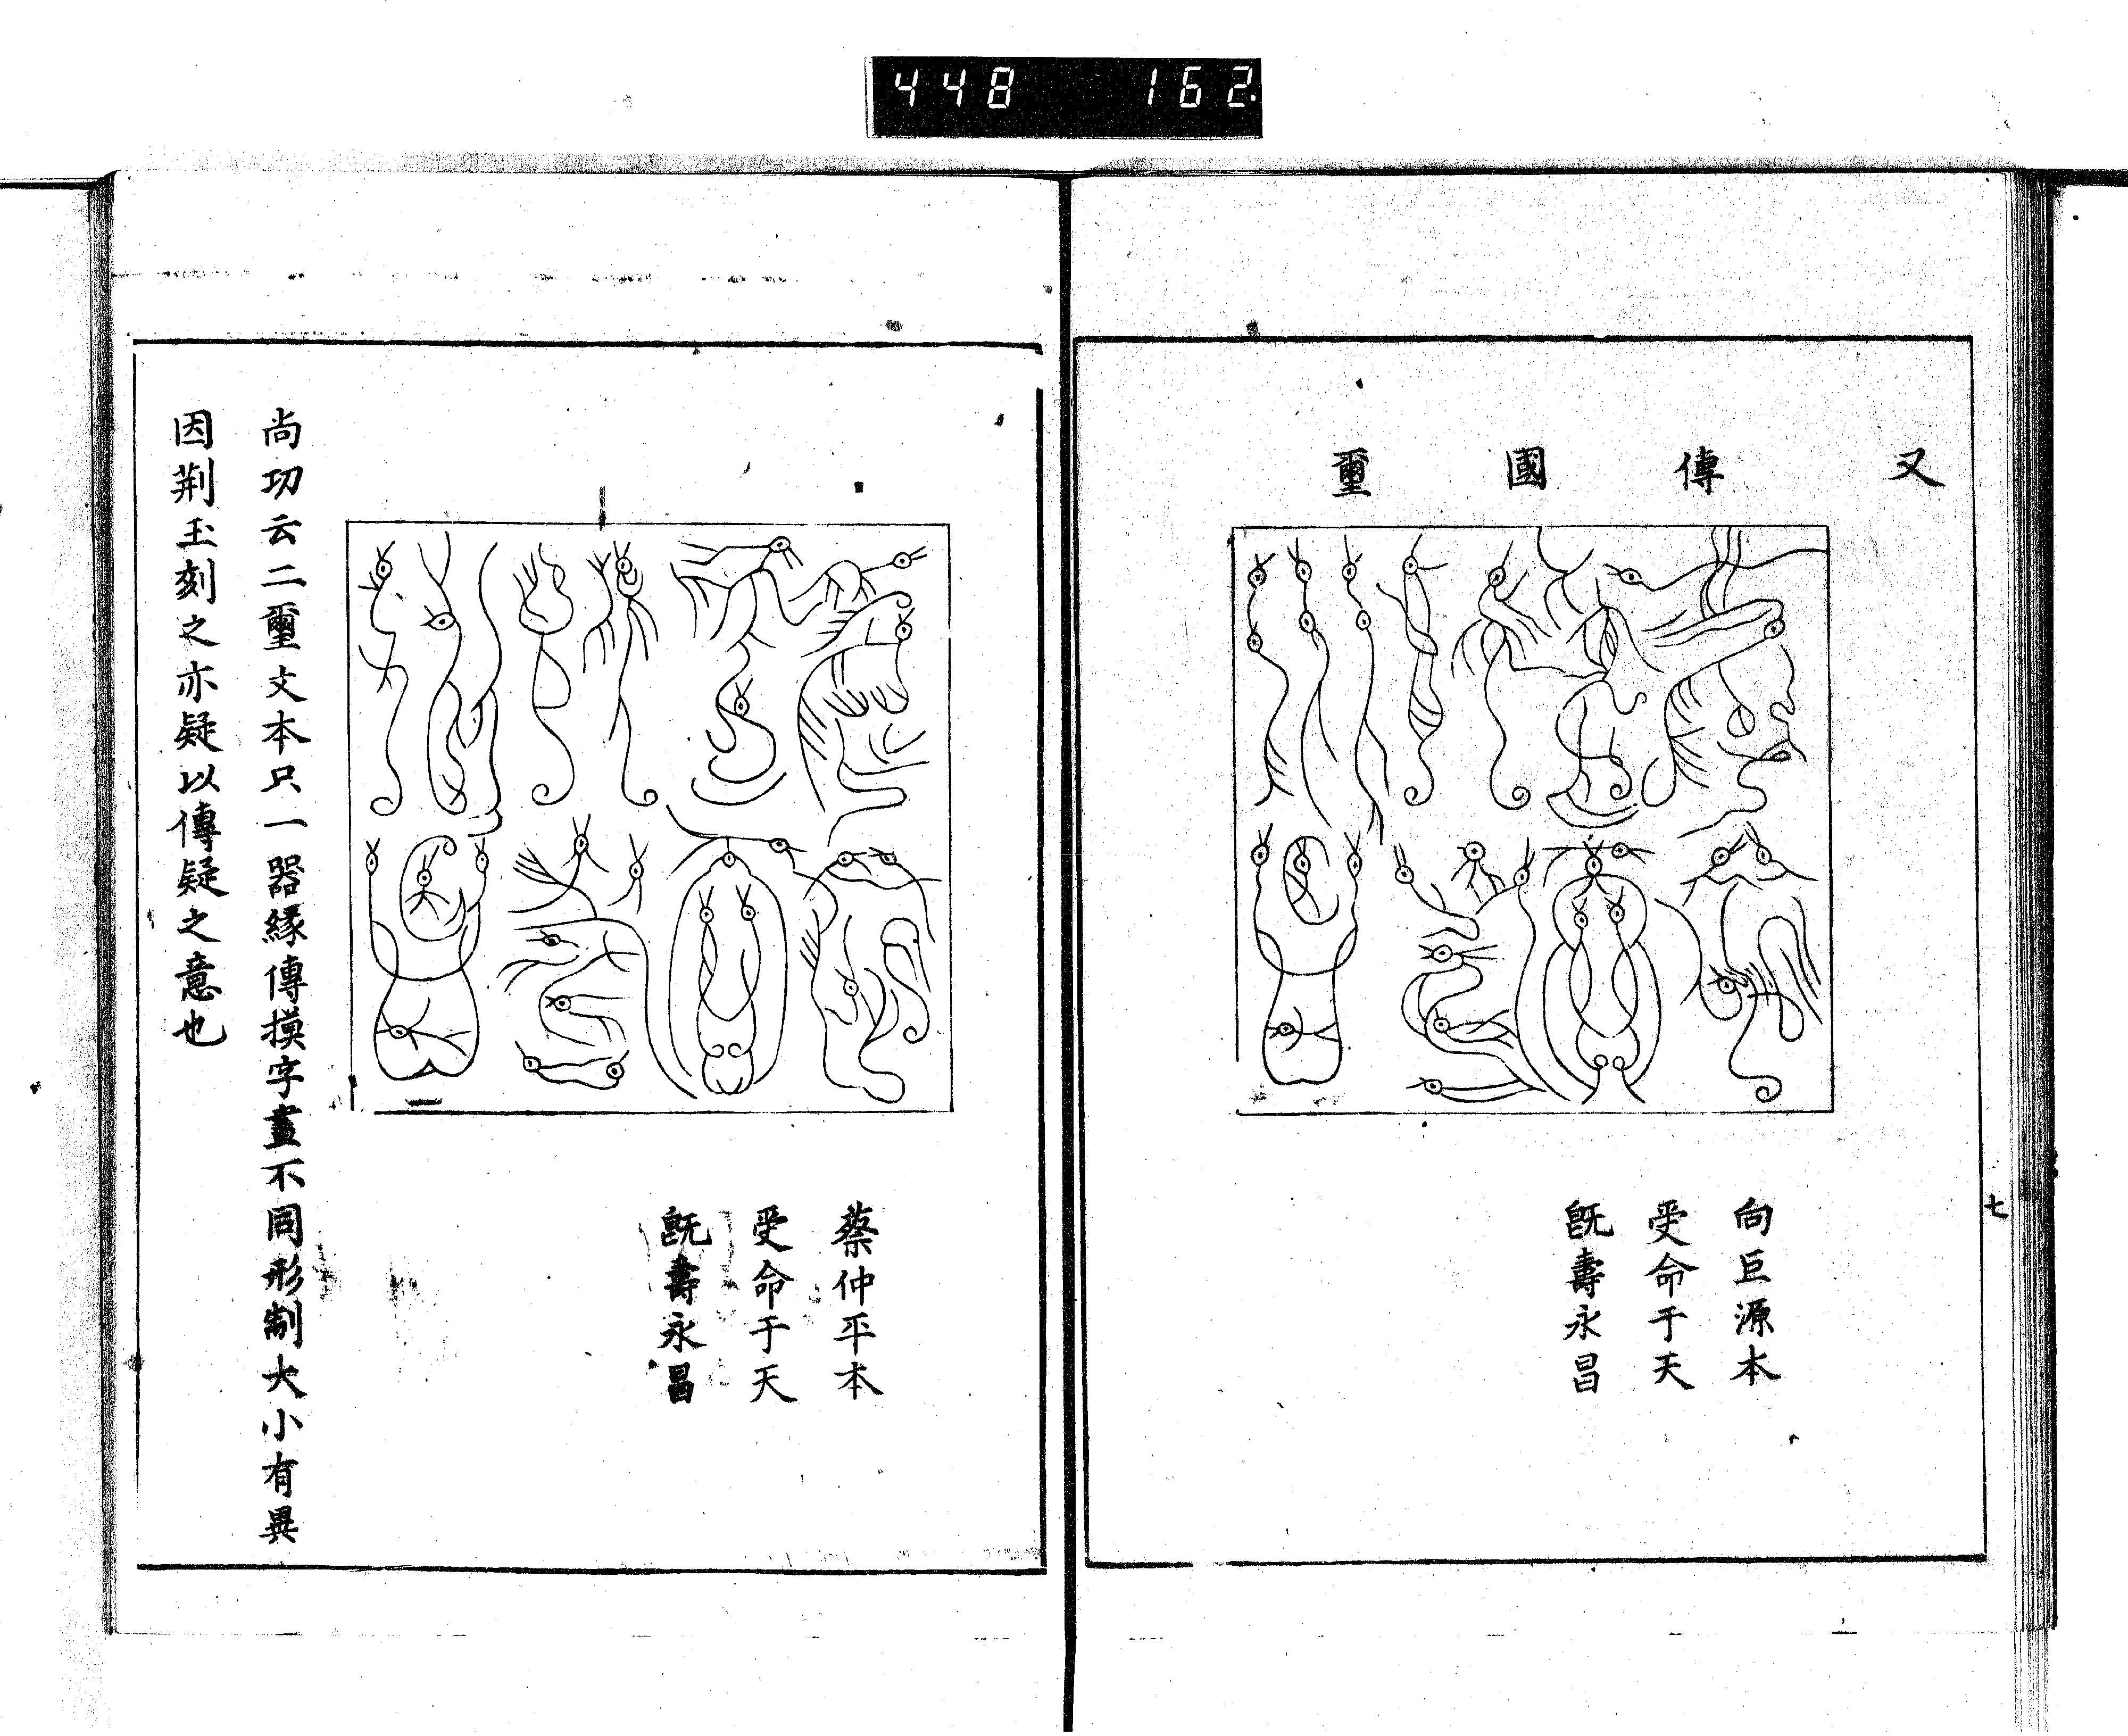 448 162
又傳國璽
向巨源本
受命于天
旣壽永昌
七
蔡仲平本
受命于天
旣壽永昌
尚功云二璽文本只一器緣傳摸字畫不同形制大小有異
因荆玉刻之亦疑以傳疑之意也